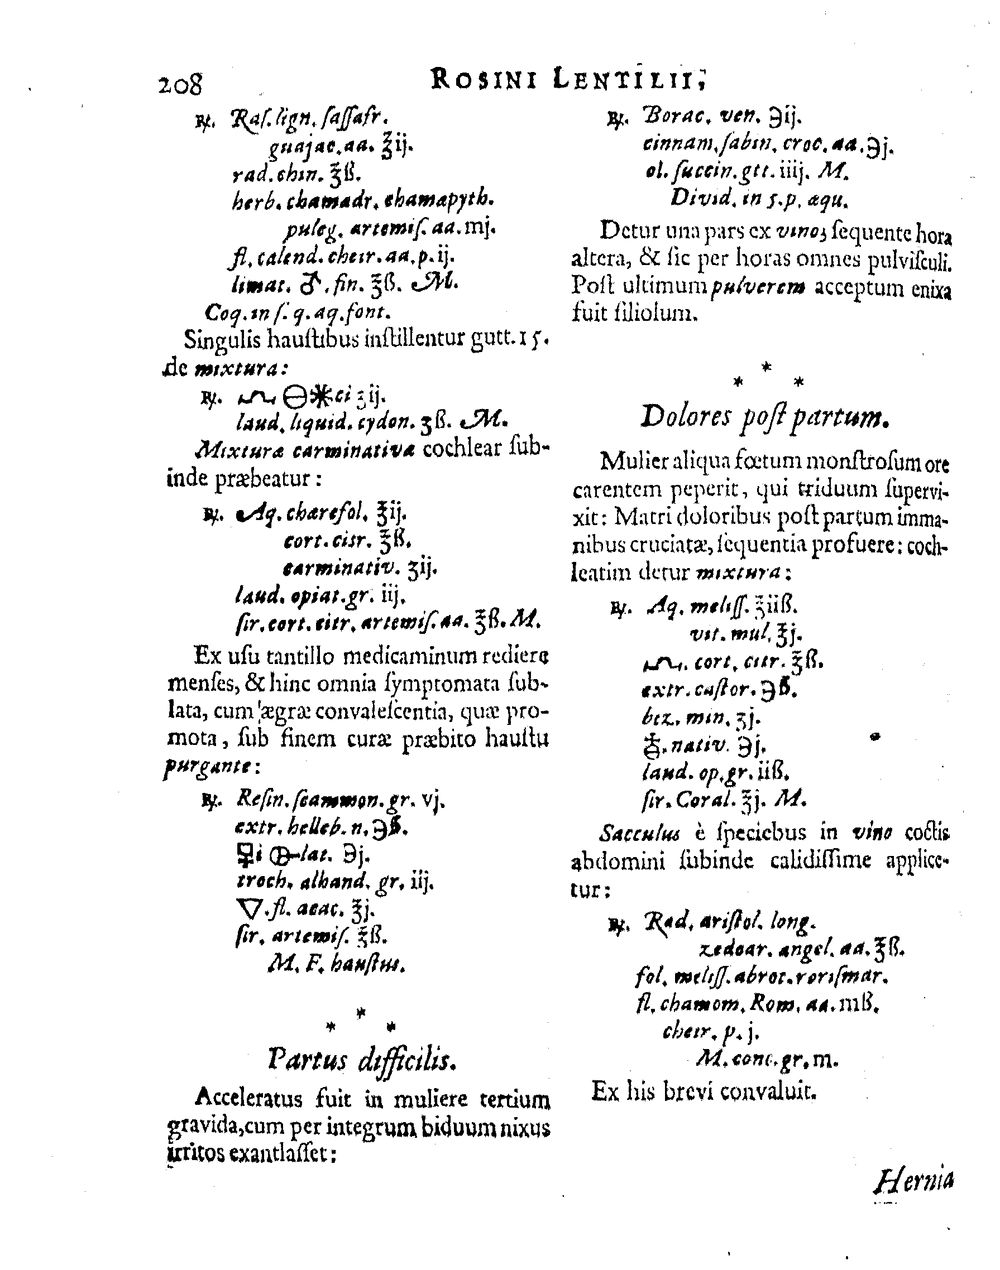 208
ROSINI LENTILII,
℞. Raſ. lign. ſaſſafr.
guajac. aa. ℥ij.
rad. chin. ℥ß.
herb. chamadr. chamapyth.
puleg. artemiſ. aa. mj.
fl. calend. cheir. aa. p. ij.
limat. ♂. fin. ℥ß. M.
Coq. in ſ. q. aq. font.
Singulis hauſtibus inſtillentur gutt. 15.
de mixtura:
℞. 🜹ci ʒij.
laud. liquid. cydon. ʒß. M.
Mixturæ carminativæ cochlear ſub-
inde præbeatur:
℞. Aq. chærefol. ℥ij.
cort. citr. ℥ß.
carminativ. ʒij.
laud. opiat. gr. iij.
ſir. cort. citr. artemiſ. aa. ℥ß. M.
Ex uſu tantillo medicaminum rediere
menſes, & hinc omnia ſymptomata ſub-
lata, cum ægræ convaleſcentia, quæ pro-
mota, ſub finem curæ præbito hauſtu
purgante:
℞. Reſin. ſcammon. gr. vj.
extr. helleb. n. ℈ß.
i lat. ℈j.
troch. alhand. gr. iij.
🜄. fl. acac. ℥j.
ſir. artemiſ. ℥ß.
M. F. hauſtus.
* * *
Partus difficilis.
Acceleratus fuit in muliere tertium
gravida, cum per integrum biduum nixus
irritos exantlaſſet:
℞. Borac. ven. ℈ij.
cinnam. ſabin. croc. aa. ℈j.
ol. ſuccin. gtt. iiij. M.
Divid. in 5. p. æqu.
Detur una pars ex vino; ſequente hora
altera, & ſic per horas omnes pulviſculi.
Poſt ultimum pulverem acceptum enixa
fuit filiolum.
* * *
Dolores poſt partum.
Mulier aliqua fœtum monſtroſum ore
carentem peperit, qui triduum ſupervi-
xit: Matri doloribus poſt partum imma-
nibus cruciatæ, ſequentia profuere: coch-
leatim detur mixtura:
℞. Aq. meliſſ. ℥iiß.
vit. mul. ℥j.
cort. citr. ℥ß.
extr. caſtor. ℈ß.
bez. min. ʒj.
nativ. ℈j.
laud. op. gr. iiß.
ſir. Coral. ℥j. M.
Sacculus è ſpeciebus in vino coctis
abdomini ſubinde calidiſſime applice-
tur:
℞. Rad. ariſtol. long.
zedoar. angel. aa. ℥ß.
fol. meliſſ. abrot. roriſmar.
fl. chamom. Rom. aa. mß.
cheir. p. j.
M. conc. gr. m.
Ex his brevi convaluit.
Hernia